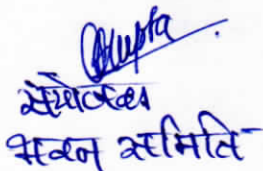 Gupta
संयोजक
भवन समिति